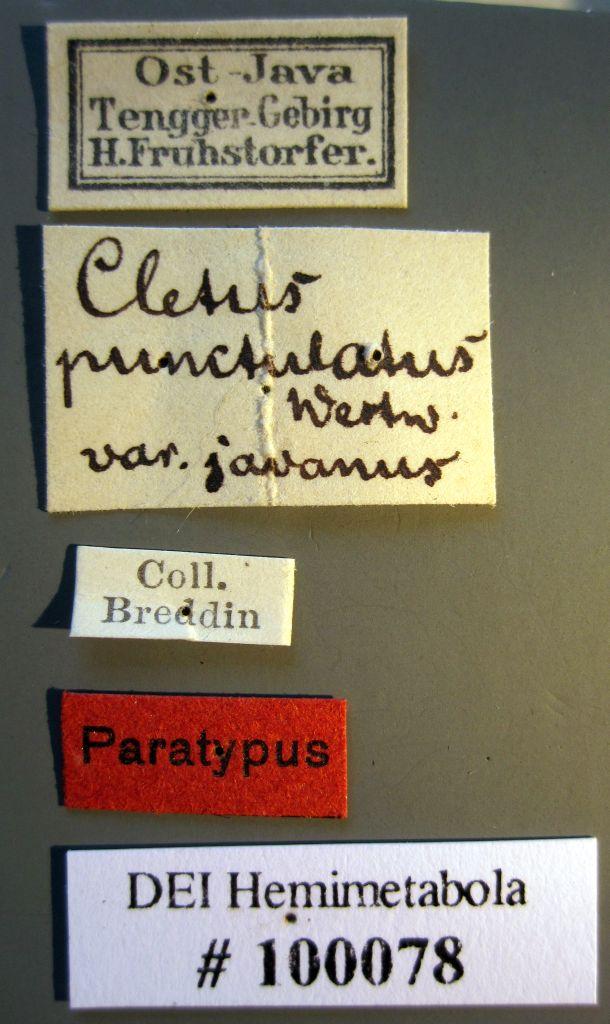 Ost-Java
Tengger-Gebirg
H.Fruhstorfer.
Cletus
punctulatus
Westw.
var. javanus
Coll.
Breddin
Paratypus
DEI Hemimetabola
# 100078